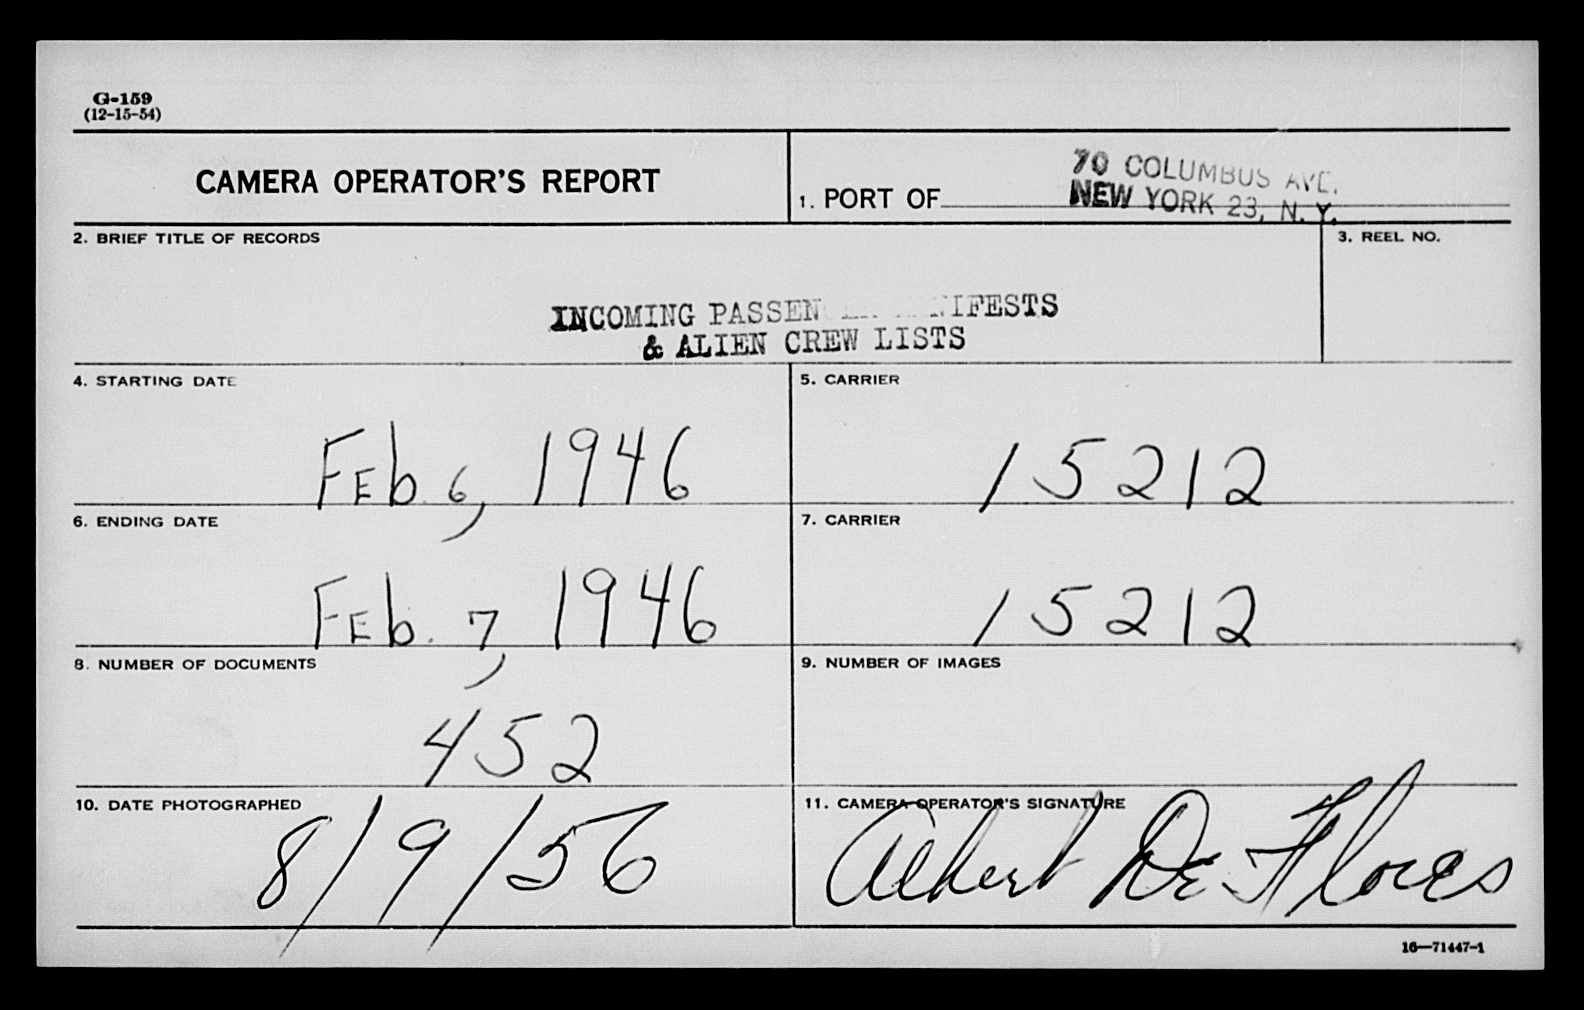 G-159
(12-15-54)
CAMERA OPERATOR'S REPORT
1. PORT OF
70 COLUMBUS AVE.
NEW YORK 23, N. Y.
2. BRIEF TITLE OF RECORDS
3. REEL NO.
INCOMING PASSENGER MANIFESTS
& ALIEN CREW LISTS
4. STARTING DATE
5. CARRIER
FEb. 6, 1946
15212
6. ENDING DATE
7. CARRIER
FEb. 7, 1946
15212
8. NUMBER OF DOCUMENTS
9. NUMBER OF IMAGES
452
10. DATE PHOTOGRAPHED
11. CAMERA OPERATOR'S SIGNATURE
8/9/56
Albert De Flores
16—71447-1